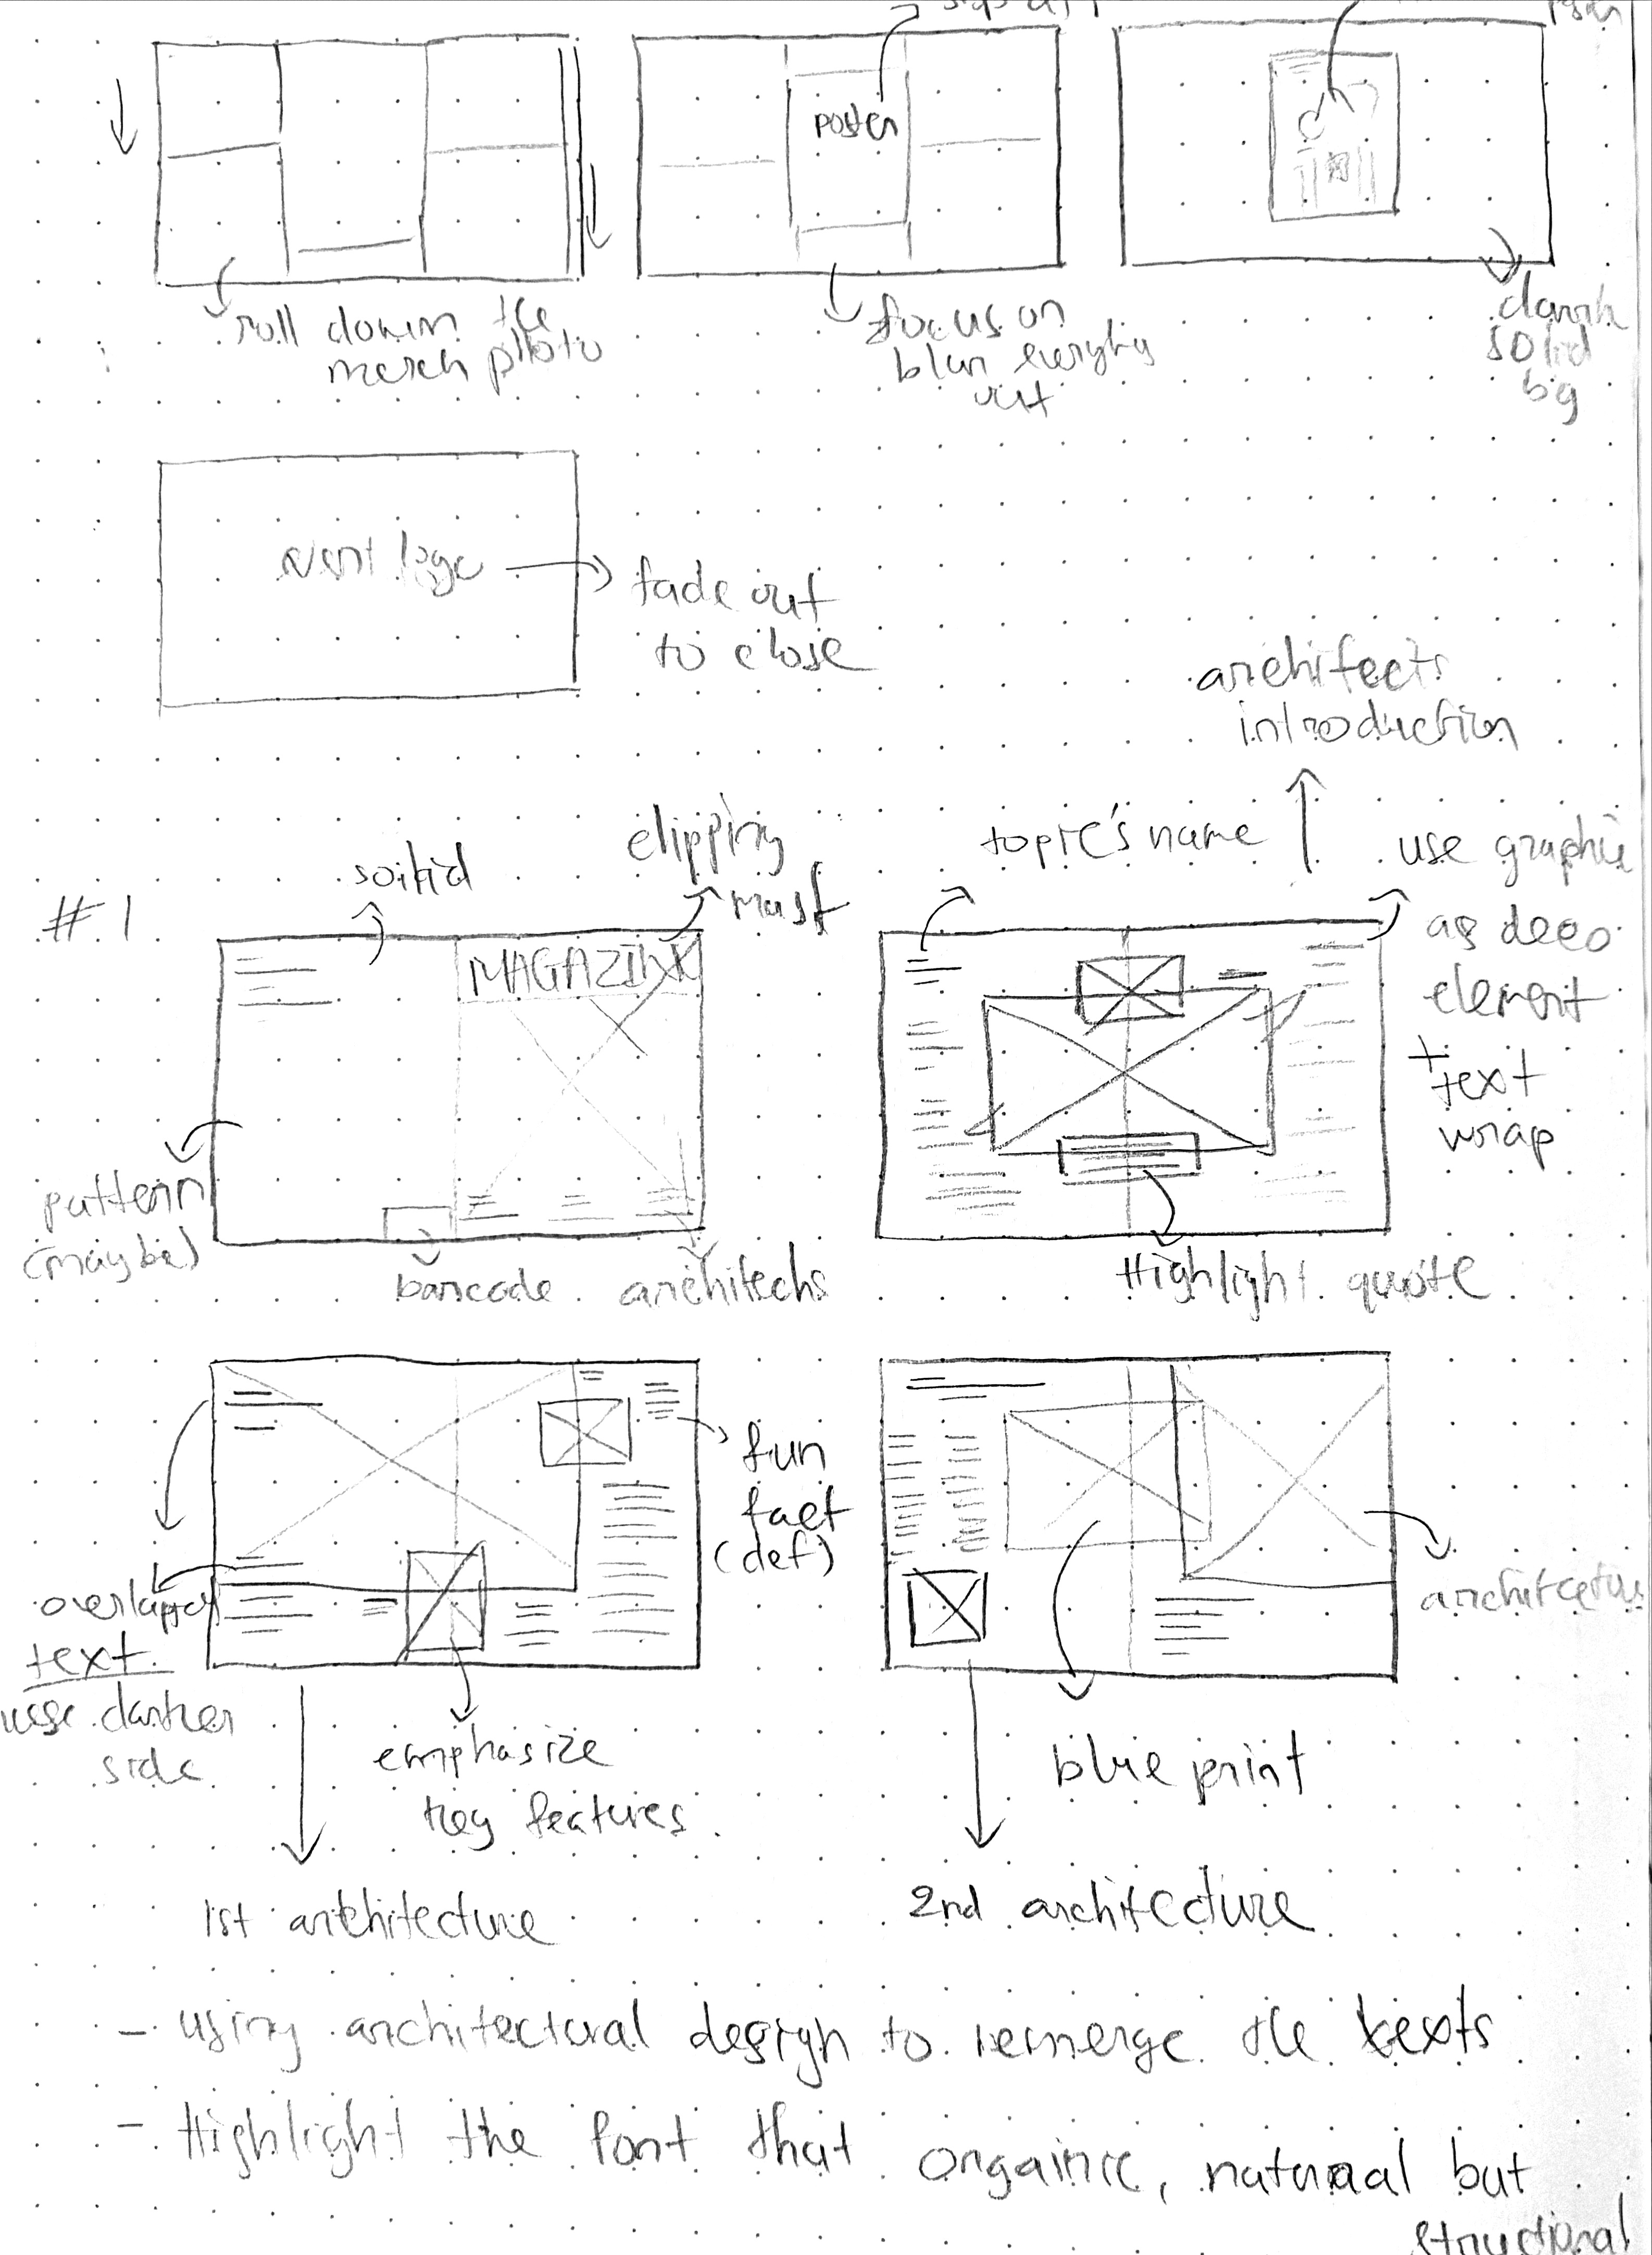 poster
roll down the
merch photo
focus on
blur everything
out
dark
solid
big
event logo
fade out
to close
architects
introduction
#1
solid
clipping
mask
topic's name
use graphic
as deco
element
+
text
wrap
MAGAZINE
pattern
(maybe)
barcode
architechs
Highlight quote
fun
fact
(def)
overlapped
text
use darker
side
emphasize
key features
blue print
1st architecture
2nd architecture
- using architectural design to remerge the texts
- Highlight the font that orgainic, natural but
structional